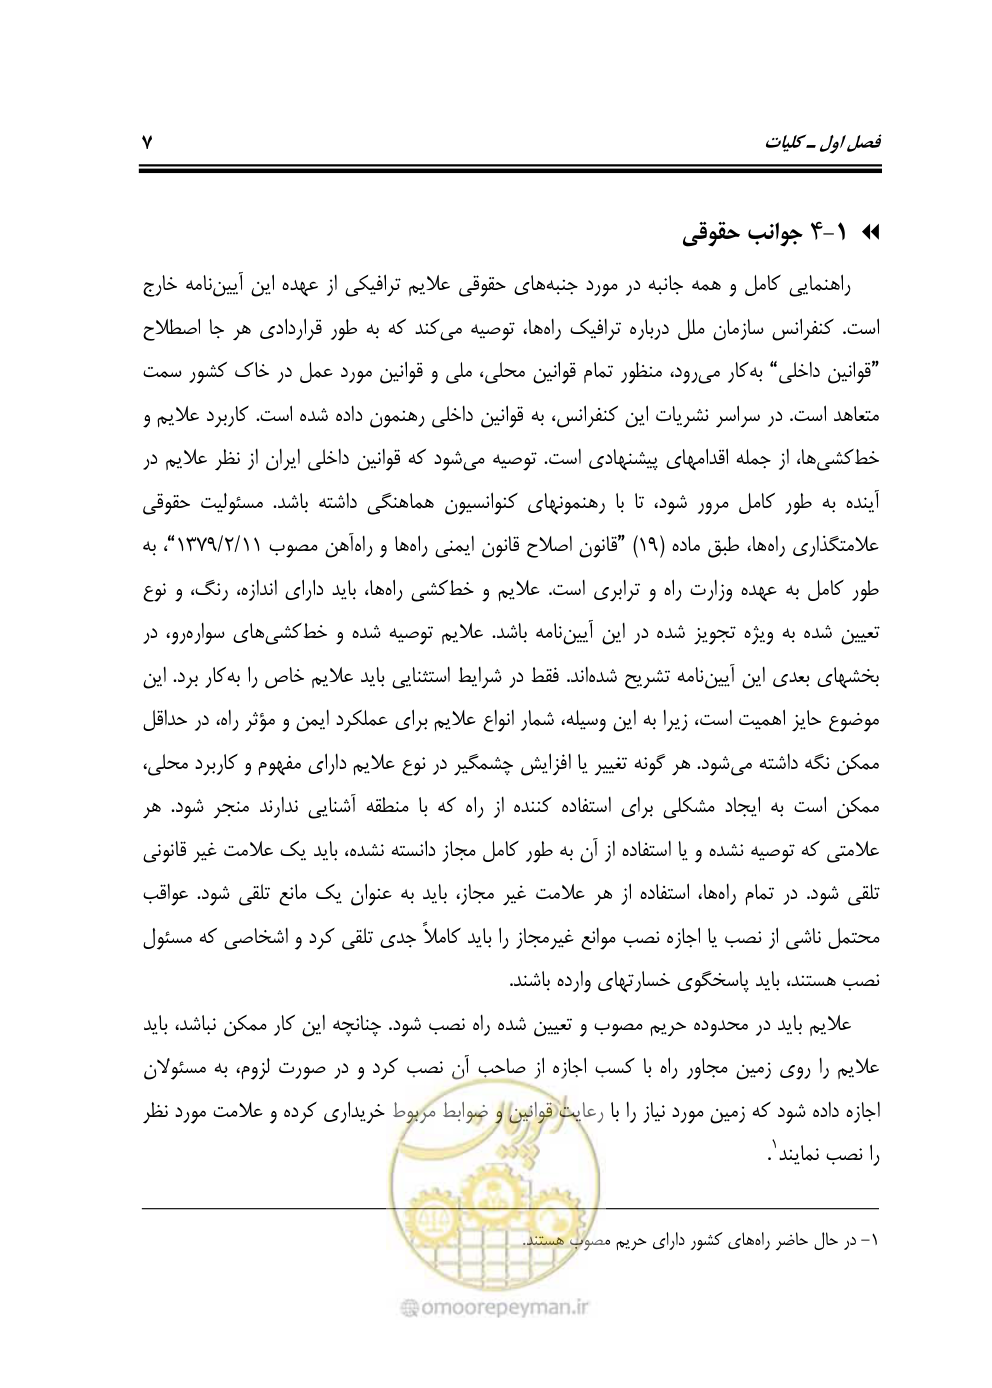 فصل اول ـ کلیات
۷
۱-۴ جوانب حقوقی
راهنمایی کامل و همه جانبه در مورد جنبه‌های حقوقی علایم ترافیکی از عهده این آیین‌نامه خارج
است. کنفرانس سازمان ملل درباره ترافیک راه‌ها، توصیه می‌کند که به طور قراردادی هر جا اصطلاح
”قوانین داخلی“ به‌کار می‌رود، منظور تمام قوانین محلی، ملی و قوانین مورد عمل در خاک کشور سمت
متعاهد است. در سراسر نشریات این کنفرانس، به قوانین داخلی رهنمون داده شده است. کاربرد علایم و
خط‌کشی‌ها، از جمله اقدامهای پیشنهادی است. توصیه می‌شود که قوانین داخلی ایران از نظر علایم در
آینده به طور کامل مرور شود، تا با رهنمونهای کنوانسیون هماهنگی داشته باشد. مسئولیت حقوقی
علامتگذاری راه‌ها، طبق ماده (۱۹) ”قانون اصلاح قانون ایمنی راه‌ها و راه‌آهن مصوب ۱۳۷۹/۲/۱۱“، به
طور کامل به عهده وزارت راه و ترابری است. علایم و خط‌کشی راه‌ها، باید دارای اندازه، رنگ، و نوع
تعیین شده به ویژه تجویز شده در این آیین‌نامه باشد. علایم توصیه شده و خط‌کشی‌های سواره‌رو، در
بخشهای بعدی این آیین‌نامه تشریح شده‌اند. فقط در شرایط استثنایی باید علایم خاص را به‌کار برد. این
موضوع حایز اهمیت است، زیرا به این وسیله، شمار انواع علایم برای عملکرد ایمن و مؤثر راه، در حداقل
ممکن نگه داشته می‌شود. هر گونه تغییر یا افزایش چشمگیر در نوع علایم دارای مفهوم و کاربرد محلی،
ممکن است به ایجاد مشکلی برای استفاده کننده از راه که با منطقه آشنایی ندارند منجر شود. هر
علامتی که توصیه نشده و یا استفاده از آن به طور کامل مجاز دانسته نشده، باید یک علامت غیر قانونی
تلقی شود. در تمام راه‌ها، استفاده از هر علامت غیر مجاز، باید به عنوان یک مانع تلقی شود. عواقب
محتمل ناشی از نصب یا اجازه نصب موانع غیرمجاز را باید کاملاً جدی تلقی کرد و اشخاصی که مسئول
نصب هستند، باید پاسخگوی خسارتهای وارده باشند.
علایم باید در محدوده حریم مصوب و تعیین شده راه نصب شود. چنانچه این کار ممکن نباشد، باید
علایم را روی زمین مجاور راه با کسب اجازه از صاحب آن نصب کرد و در صورت لزوم، به مسئولان
اجازه داده شود که زمین مورد نیاز را با رعایت قوانین و ضوابط مربوط خریداری کرده و علامت مورد نظر
را نصب نمایند۱.
۱- در حال حاضر راه‌های کشور دارای حریم مصوب هستند.
امور پیمان
@omoorepeyman.ir